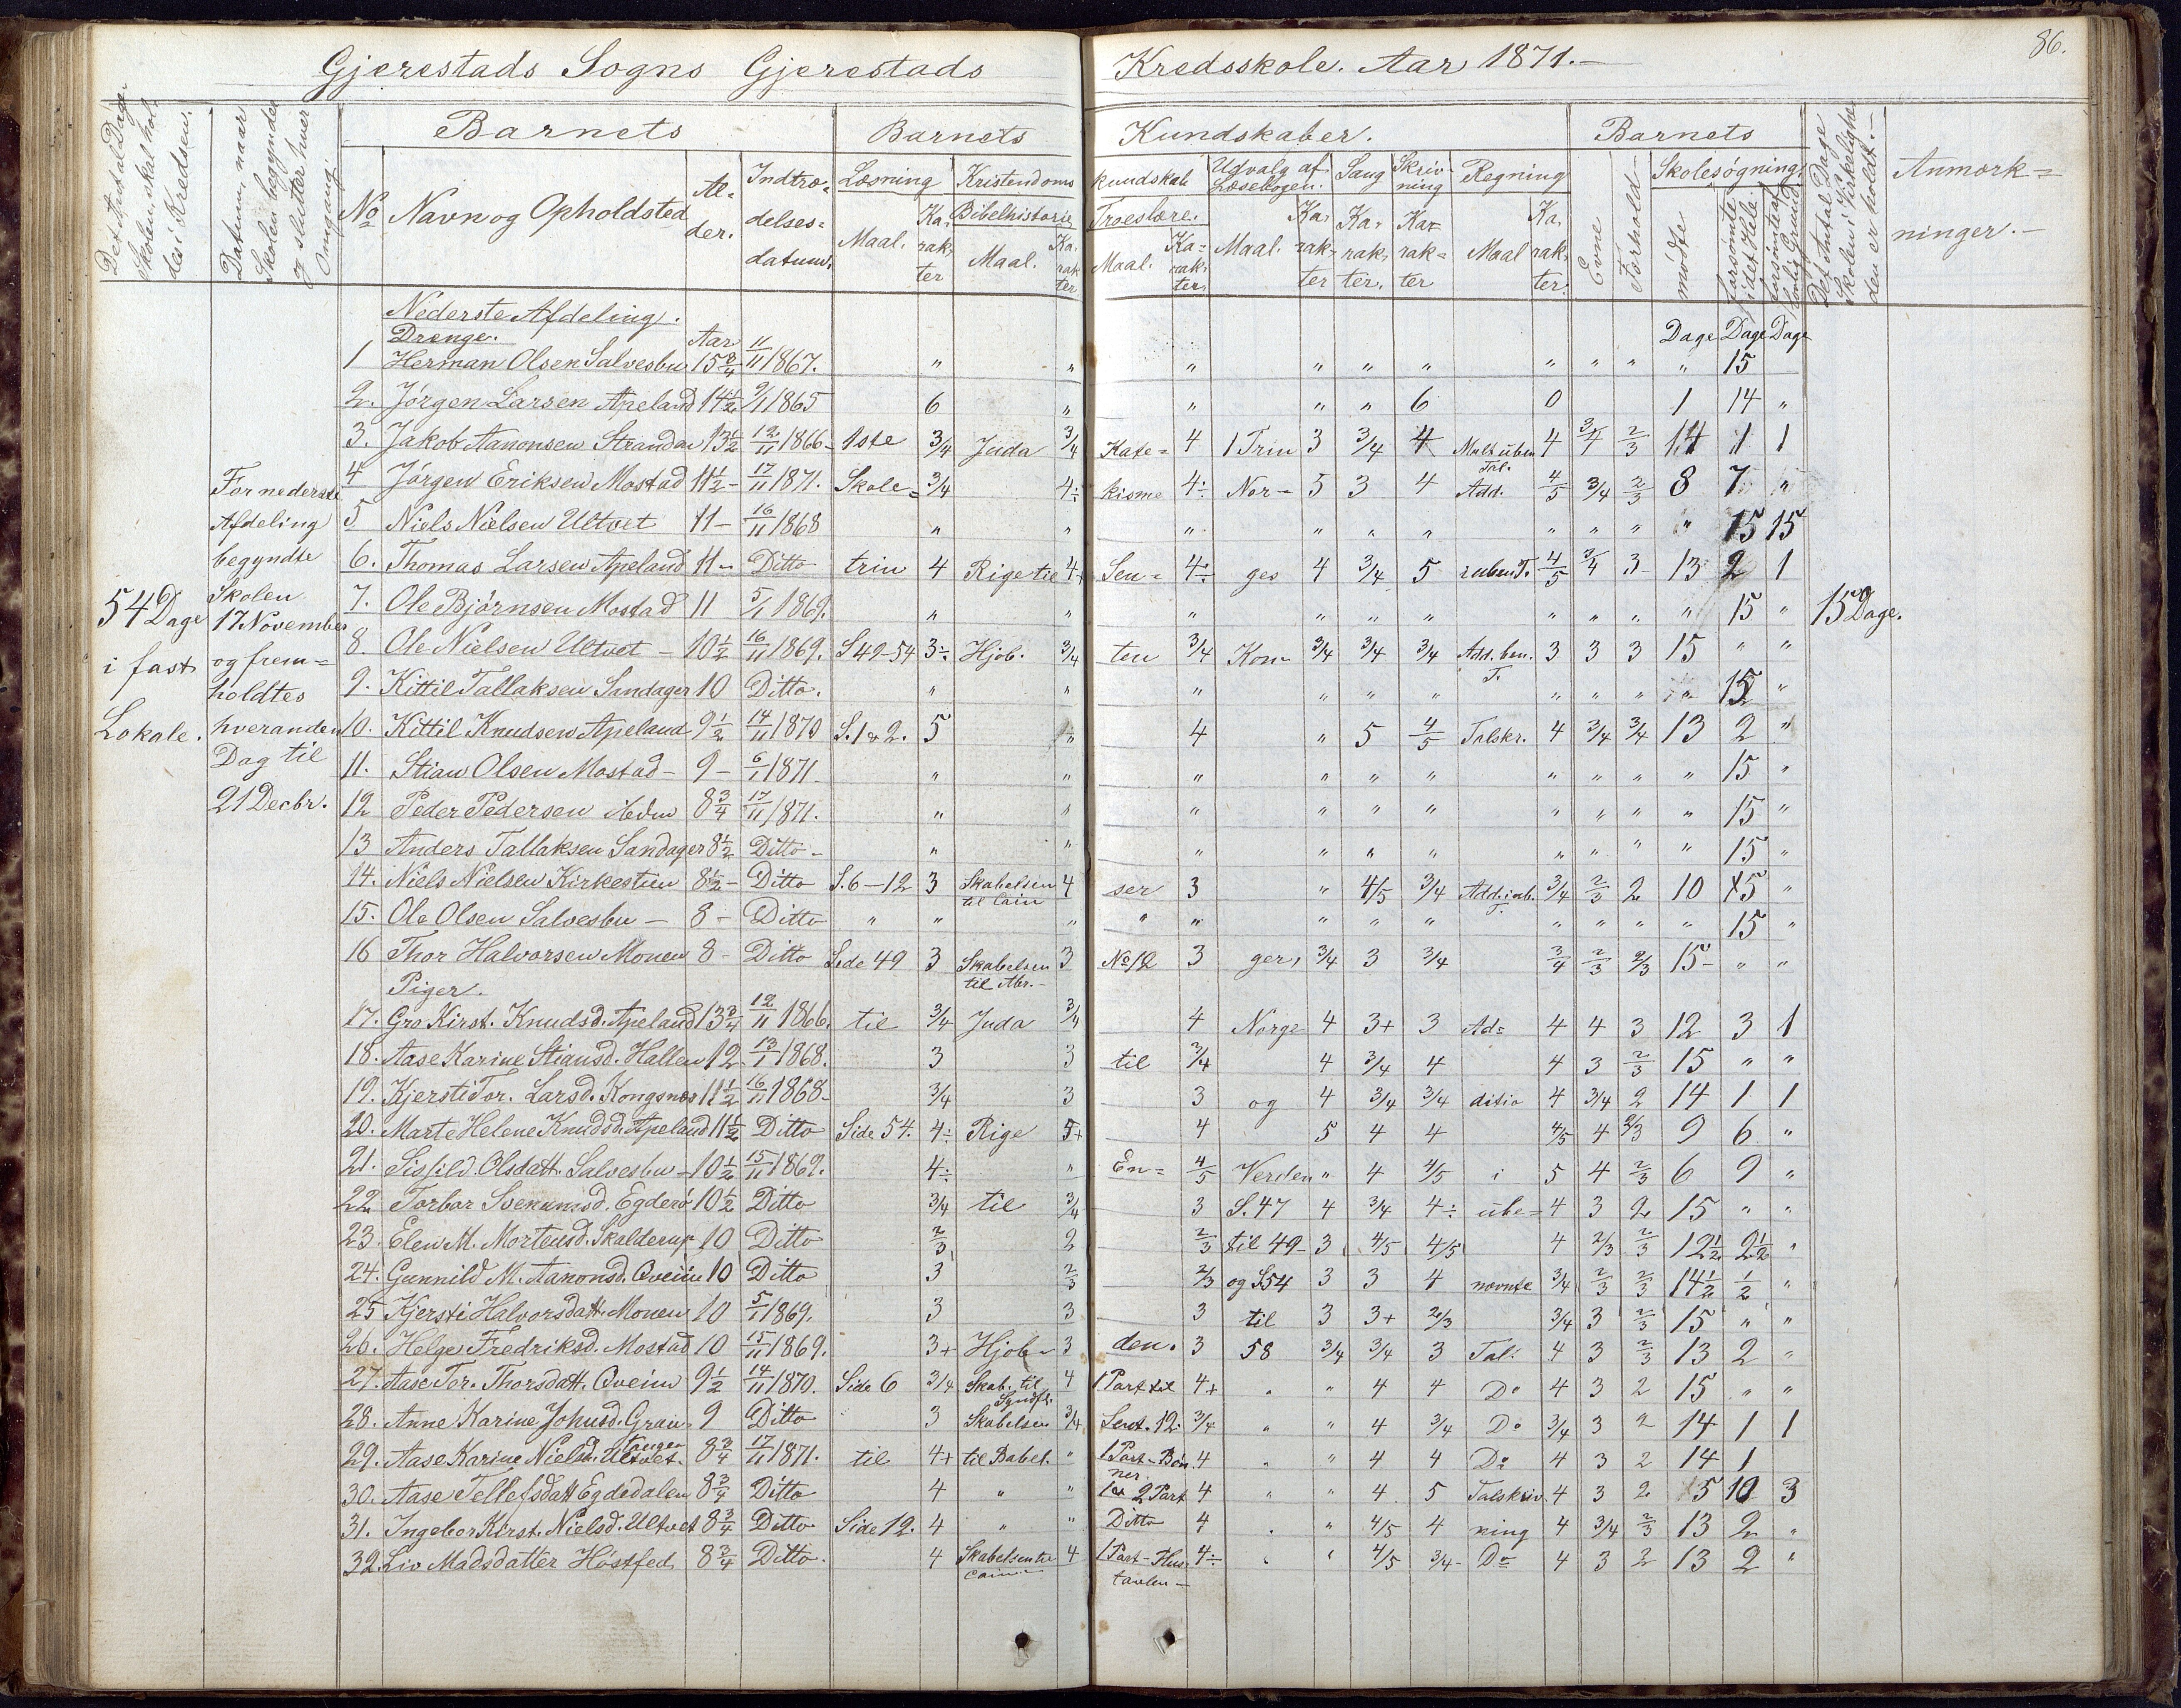 Gjerestads Sogns Gjerestads Kredsskole. Aar 1871.-
86.
Det Antal Dage Skolen skal holdes i Kredsen.
Datum, naar Skolen begynder og slutter hver Omgang
Barnets
Barnets Kundskaber.
Barnets
Det Antal Dage Skolen i Virkelighe- den er holdt.-
Anmærk= ninger.-
No Navn og Opholdsted Al- der. Indtræ- delses= datum.
Læsning Kristendoms kundskab Udvalg af Læsebogen. Sang Skriv- ning Regning Evne Forhold Skolesøgning.
Maal. Ka- rak- ter Bibelhistorie Maal. Ka- rak ter Troeslære. Maal. Ka- rak- ter. Maal. Ka- rak- ter Ka- rak- ter. Ka- rak- ter Maal Ka- rak- ter. mødte forsømte i det Hele forsømte af lovlig Grund
Nederste Afdeling.
Drenge. Aar Dage Dage Dage
1 Herman Olsen Salvesbu 15 3/4 11/11 1867. " " " " " " " " " " 15
2. Jørgen Larsen Apeland 14 1/2 9/1 1865 6 " " " " 6 0 1 14 "
3. Jakob Aanonsen Strandan 13 1/2 12/11 1866- 1ste 3/4 Juda 3/4 Kate= 4 1 Trin 3 3/4 4 Mult. uben Tal. 4 3/4 2/3 14 1 1
4 Jørgen Eriksen Mostad 11 1/2- 17/11 1871. Skole= 3/4 4÷ kisme 4÷ Nor- 5 3 4 Add. 4/5 3/4 2/3 8 7 "
5 Niels Nielsen Ultvet 11- 16/11 1868 " " " " " " " " " " 15 15
6. Thomas Larsen Apeland 11- Ditto trin 4 Rige til 4+ Sen= 4÷ ges 4 3/4 5 i uben T. 4/5 3/4 3 13 2 1
7. Ole Bjørnsen Mostad 11 5/1 1869. " " " " " " " " " " 15 "
8. Ole Nielsen Ultvet - 10 1/2 16/11 1869. S 49-54 3÷ Hjob. 3/4 ten 3/4 Kon- 3/4 3/4 3/4 Add. ben. T. 3 3 3 15 " "
9. Kittil Tallaksen Sandager 10 Ditto. " " " " " " " " " " 15 "
10. Kittil Knudsen Apeland 9 1/2 14/11 1870 S. 1 & 2. 5 " 4 " 5 4/5 Talskr. 4 3/4 3/4 13 2 "
11. Stian Olsen Mostad - 9- 6/1 1871- " " " " " " " " " " 15 "
12 Peder Pedersen 8 3/4 17/11 1871. " " " " " " " " " " 15 "
13 Anders Tallaksen Sandager 8 1/2 Ditto- " " " " " " " " " " 15 "
14. Niels Nielsen Kirkestien 8 1/2- Ditto S. 6-12 3 Skabelsen til Cain 4 ser 3 " 4/5 3/4 Add. i ub. T. 3/4 2/3 2 10 5 "
15. Ole Olsen Salvesbu - 8- Ditto " " " " " " " " " " " " 15 "
16 Thor Halvorsen Monen 8- Ditto Side 49 3 Skabelsen til Abr.- 3 No 12 3 ger, 3/4 3 3/4 3/4 2/3 2/3 15- " "
Piger.
17. Gro Kirst. Knudsd. Apeland 13 3/4 12/11 1866. til 3/4 Juda 3/4 4 Norge 4 3+ 3 Ad= 4 4 3 12 3 1
18. Aase Karine Stiansd. Hallen 12 13/1 1868. 3 3 til 3/4 4 3/4 4 4 3 2/3 15 " "
19. Kjersti Tor. Larsd. Kongsnæs 11 1/2 16/11 1868- 3/4 3 3 og 4 3/4 3/4 ditio 4 3/4 2 14 1 1
20. Marte Helene Knudsd. Apeland 11 1/2 Ditto Side 54. 4÷ Rige 5+ 4 5 4 4 4/5 4 2/3 9 6 "
21. Sigfild Olsdatt. Salvesbu - 10 1/2 15/11 1869. 4÷ " En= 4/5 Verden " 4 4/5 i 5 4 2/3 6 9 "
22. Torbor Svenumsd. Egderø 10 1/2 Ditto 3/4 til 3/4 3 S. 47 4 3/4 4÷ ube= 4 3 2 15 " "
23. Elen M. Mortensd. Skalderup 10 Ditto 2/3 2 2/3 til 49- 3 4/5 4/5 4 2/3 2/3 12 1/2 2 1/2 "
24. Gunnild M. Aanonsd. Qveim 10 Ditto 3 2/3 2/3 og S 54 3 3 4 nævnte 3/4 2/3 2/3 14 1/2 1/2 "
25 Kjersti Halvorsdatt. Monen 10 5/1 1869. 3 3 3 til 3 3+ 2/3 3/4 3 2/3 15 " "
26. Helge Fredriksd. Mostad 10 15/11 1869. 3+ Hjob- 3 den. 3 58 3/4 3/4 3 Tal. 4 3 2/3 13 2 "
27. Aase Tor. Thorsdatt. Qveim 9 1/2 14/11 1870. Side 6 3/4 Skab. til Syndfl. 4 1 Part til 4+ " " 4 4 Do 4 3 2 15 " "
28. Anne Karine Johnsd. Grain 9 Ditto 3 Skabelsen 3/4 Sent. 12. 3/4 " " 4 3/4 Do 3/4 3 2 14 1 1
29. Aase Karine Nielsd. Ultvet. tangen 8 3/4 17/11 1871. til 4+ til Babel. " 1 Part- Bøn- ner. 4 " " 4 4 Do 4 3 2 14 1
30. Aase Tellefsdatt Egdedalen 8 3/4 Ditto 4 " " 1 & 2 Part 4 " " 4 5 Talskriv- 4 3 2 5 10 3
31. Ingebor Kirst. Nielsd. Ultvet 8 3/4 Ditto Side 12. 4 " " Ditto 4 " " 4/5 4 ning 4 3/4 2/3 13 2 "
32. Liv Madsdatter Høstfed 8 3/4 Ditto. 4 Skabelsen til Cain- 4 1 Part- Hus- tavlen- 4÷ " " 4/5 3/4- Do 4 3 2 13 2 "
54 Dage
i fast
Lokale.
For nederste
Afdeling
begyndte
Skolen
17 November
og frem=
holdtes
hveranden
Dag til
21 Decbr.
15 Dage.